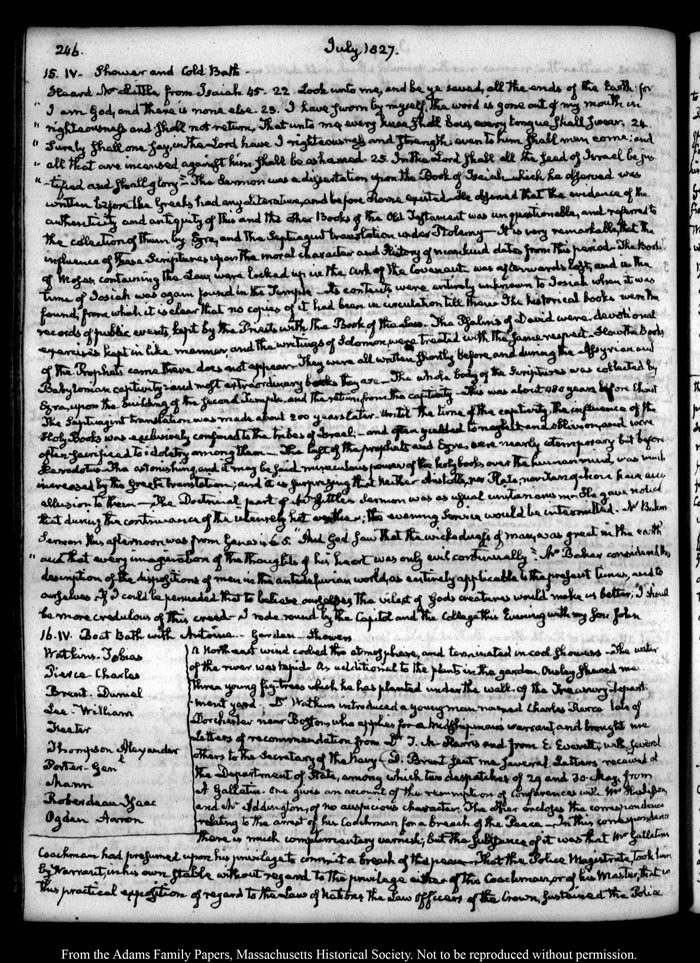 246.
July 1827.
15. IV. Shower and Cold Bath.
Heard Mr. Little from Isaiah 45. 22. Look unto me, and be ye saved, all the ends of the Earth; for
" I am God, and there is none else. 23. I have sworn by myself, the word is gone out of my mouth in
" righteousness and shall not return, That unto me every knee shall bow, every tongue shall swear. 24.
" Surely shall one say, in the Lord have I righteousness and strength; even to him shall men come; and
" all that are incensed against him shall be ashamed. 25. In the Lord shall all the seed of Israel be jus-
" tified and shall glory." The Sermon was a dissertation upon the Book of Isaiah which he observed was
written before the Greeks had any literature, and before Rome existed. He observed that the evidence of the
authenticity and antiquity of this and the other Books of the Old Testament was unquestionable, and referred to
the collection of them by Ezra, and the Septuagint translation under Ptolemy. It is very remarkable that the
influence of these Scriptures upon the moral character and History of mankind dates from this period. The Book
of Moses containing the Law, were locked up in the Ark of the Covenant was afterwards lost, and in the
time of Josiah was again found in the Temple. Its contents were entirely unknown to Josiah when it was
found, from which it is clear that no copies of it had been in circulation till then. The historical books were the
records of public events kept by the Priests with the Book of the Law. The Psalms of David were devotional
exercises kept in like manner and the writings of Solomon were treated with the same respect. How the Books
of the Prophets came there does not appear. They were all written shortly before, and during the Assyrian and
Babylonian captivity and most extraordinary books they are. The whole body of the Scriptures was collected by
Ezra, upon the building of the second Temple, and the return from the captivity. This was about 480 years before Christ
The Septuagint translation was made about 200 years later. Until the time of the captivity the influence of the
Holy Books was exclusively confined to the tribes of Israel; and often yielded to neglect and oblivion, and were
often sacrificed to idolatry among them. The last of the prophets and Ezra, were nearly cotemporary but before
Herodotus. The astonishing, and it may be said miraculous power of the holy books over the human mind, was much
increased by the Greek translation; and it is surprizing that neither Aristotle, nor Plato, nor Xenophon have any
allusion to them. The Doctrinal part of Mr. Little's Sermon was as usual unitarianism. He gave notice
that during the continuance of the intensely hot weather, the evening service would be intermitted. Mr. Baker's
Sermon this afternoon was from Genesis 6. 5. And God saw that the wickedness of man was great in the earth
" and that every imagination of the thoughts of his heart was only evil continually." Mr. Baker considered this
description of the dispositions of men in the antediluvian world, as entirely applicable to the present times, and to
ourselves. If I could be persuaded that to believe ourselves the vilest of Gods creatures would make us better, I should
be more credulous of this creed. I rode round by the Capitol and the College this Evening with my Son John
16. IV. Boat Bath with Antoine. Garden. Showers
Watkins. Tobias
Pierce. Charles
Brent. Daniel
Lee. William
Keeter
Thompson Alexander
Porter. Genl
Mann
Roberdeau Isaac
Ogden Aaron
A Northeast wind cooled the atmosphere, and terminated in cool showers. The water
of the river was tepid. As additional to the plants in the garden Ousley shewed me
three young fig-trees which he has planted under the wall of the Treasury Depart-
ment yard. Dr. Watkins introduced a young man named Charles Pierce late of
Dorchester near Boston, who applies for a midshipman's warrant, and brought me
Letters of recommendation from Dr. T. M. Harris and from E. Everett, with several
others to the Secretary of the Navy. D. Brent sent me several Letters received at
the Department of State, among which two despatches of 29 and 30 May, from
A Gallatin. One gives an account of the resumption of Conferences with Mr. Huskisson
and Mr. Addington, of no auspicious character. The other encloses the correspondence
relating to the arrest of his Coachman for a breach of the Peace. In this correspondence
there is much complimentary varnish, but the substance of it was that Mr. Gallatin's
Coachman had presumed upon his privilege to commit a breach of the peace. That the Police Magistrate, took him
by Warrant, in his own stable without regard to the privilege either of the Coachman, or of his Master; that in
this practical exposition of regard to the Law of Nations the Law Officers of the Crown, sustained the Police
From the Adams Family Papers, Massachusetts Historical Society. Not to be reproduced without permission.